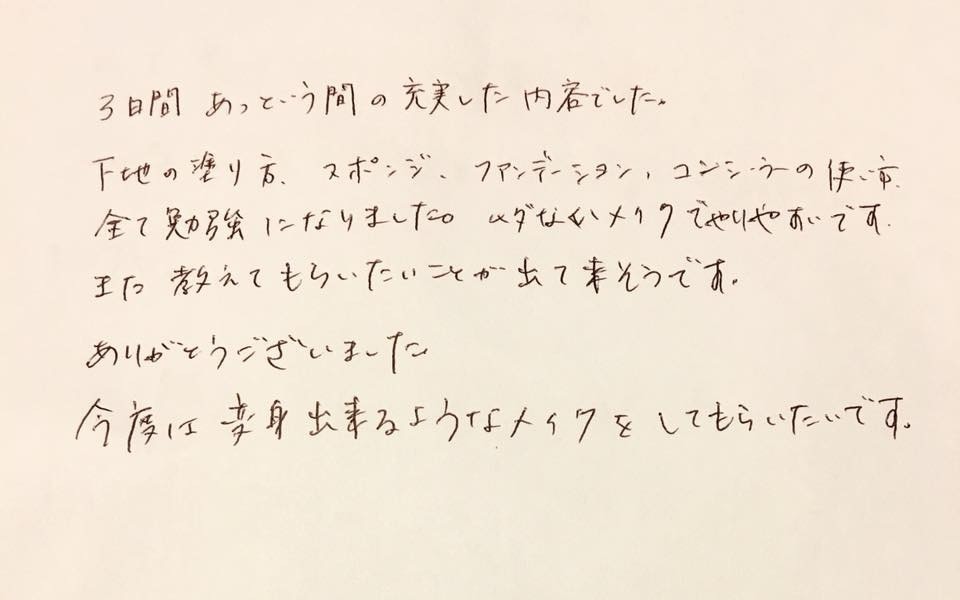 3日間 あっという間の充実した内容でした。
下地の塗り方、スポンジ、ファンデーション、コンシーラーの使い方、
全て勉強になりました。ムダなくメイクでやりやすいです。
また教えてもらいたいことが出て来そうです。
ありがとうございました
今度は変身出来るようなメイクをしてもらいたいです。